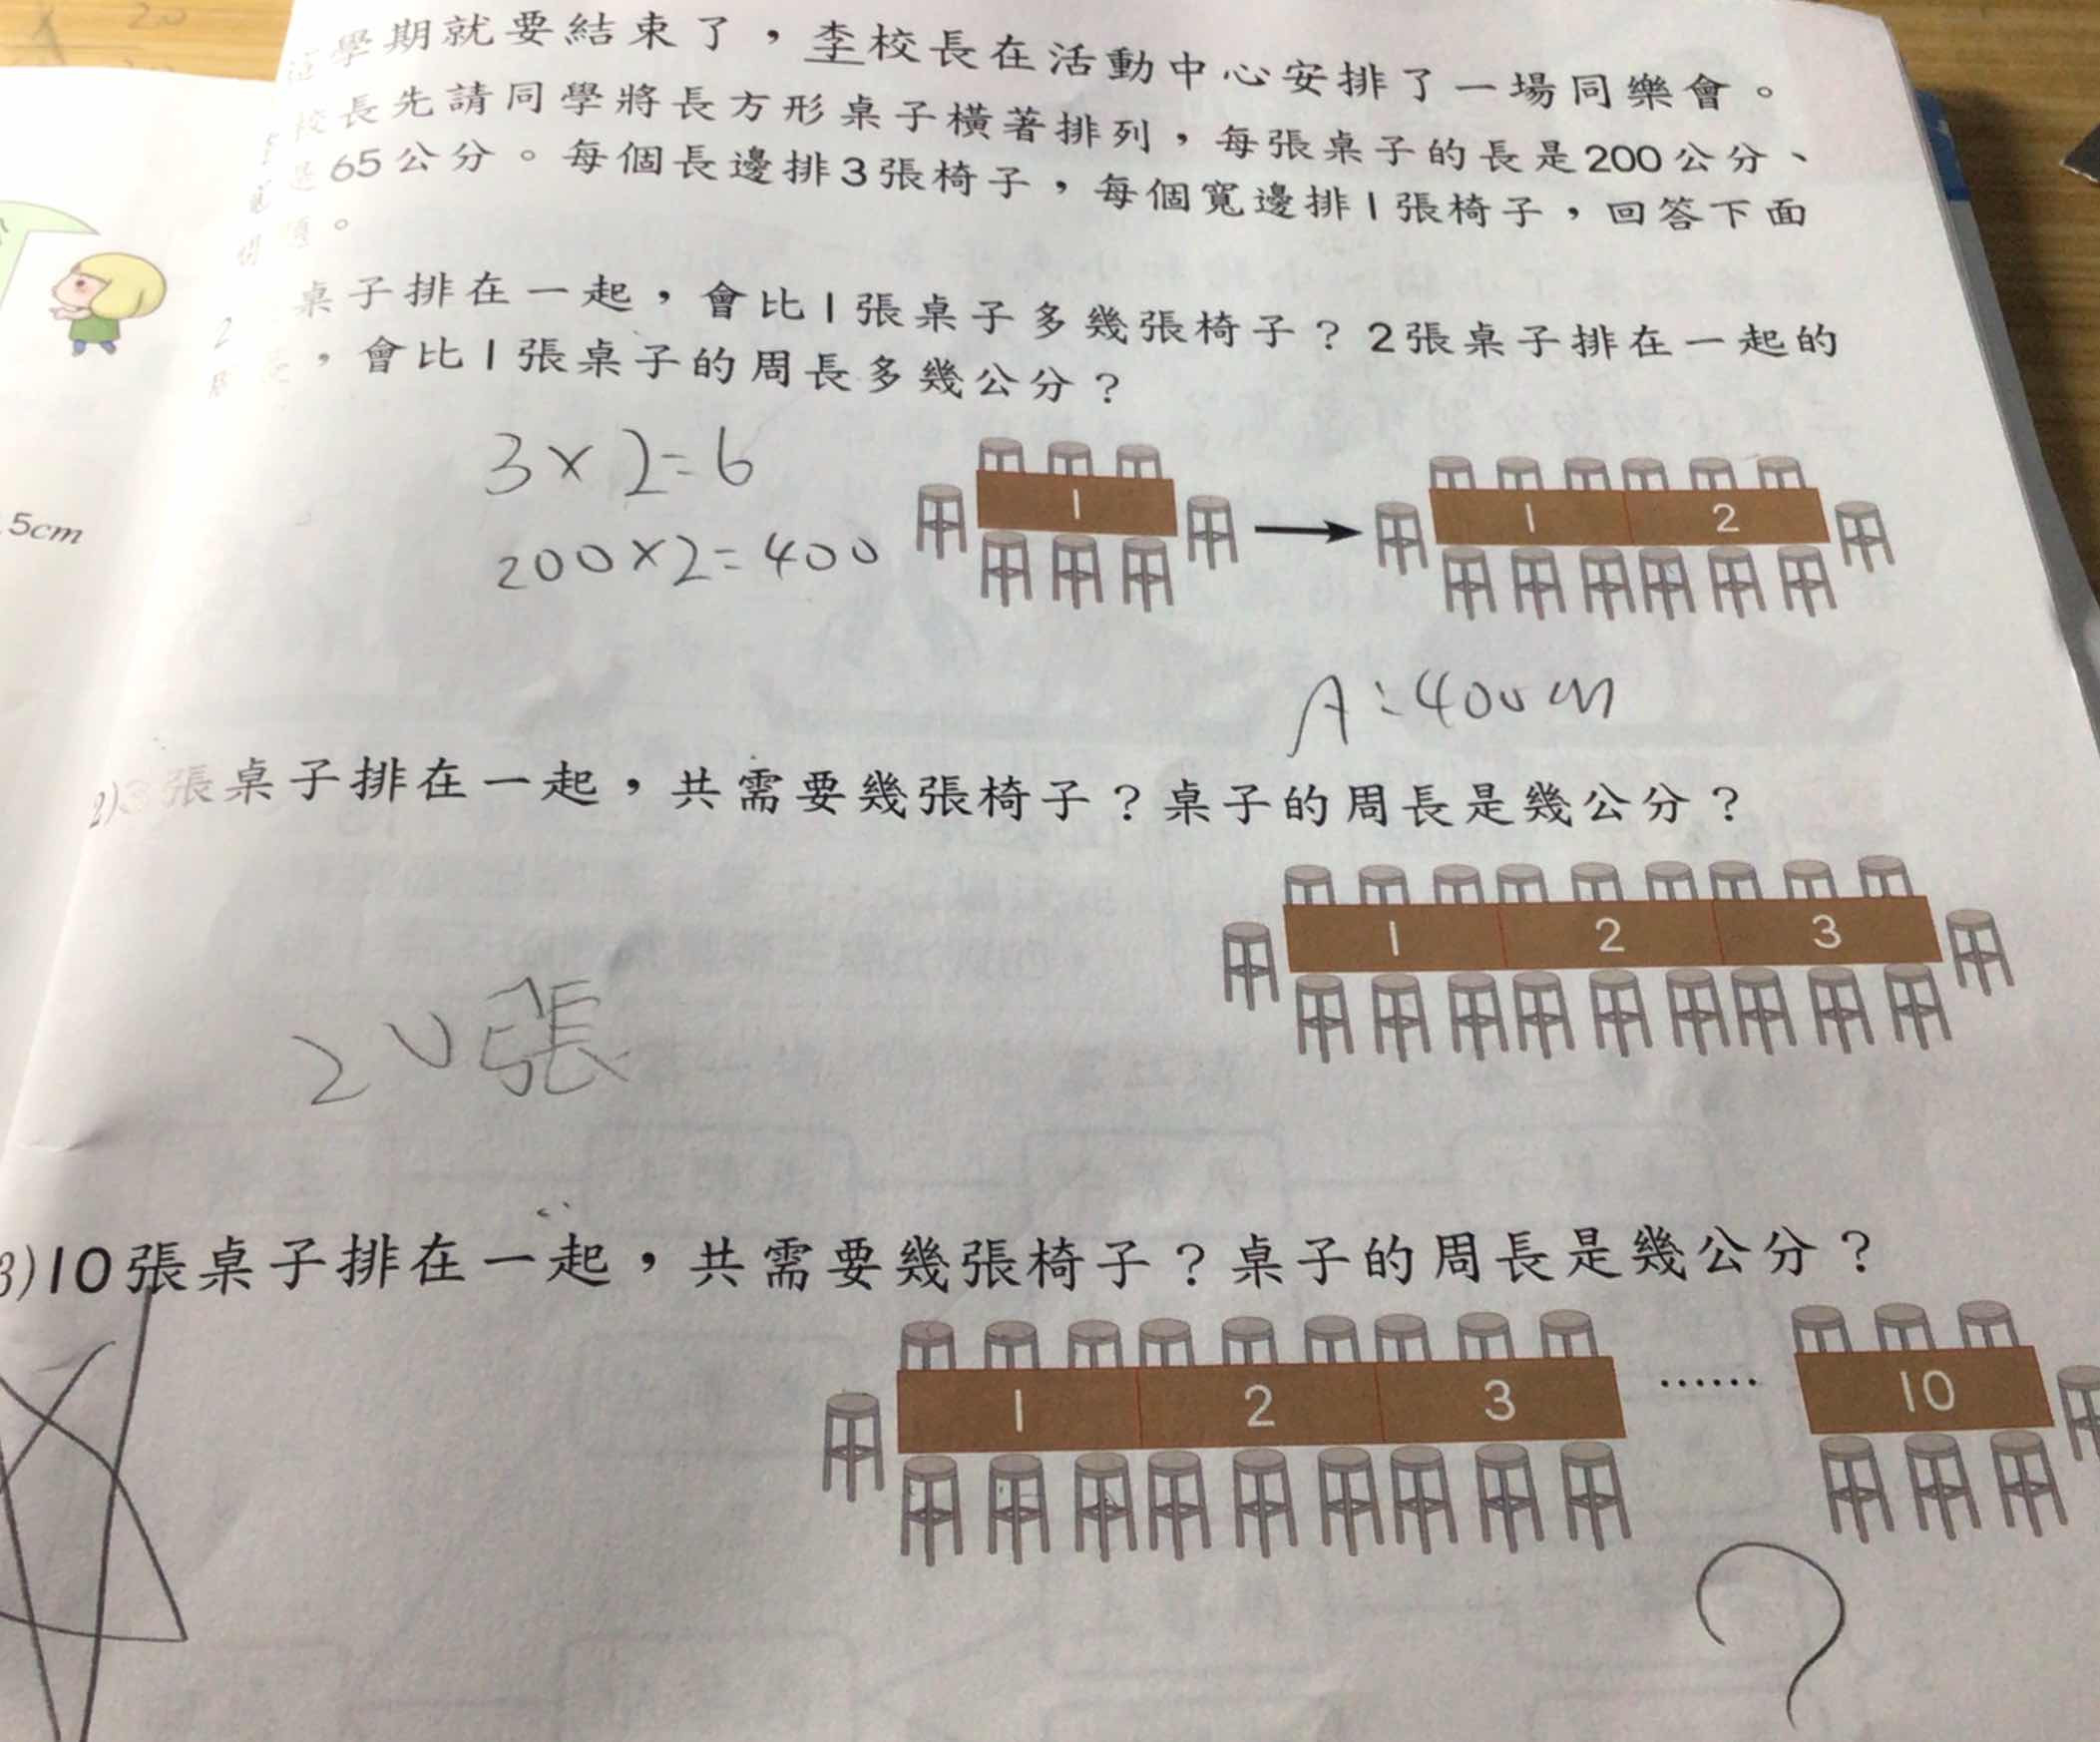 學期就要結束了，李校長在活動中心安排了一場同樂會。
校長先請同學將長方形桌子橫著排列，每張桌子的長是200公分、
65公分。每個長邊排3張椅子，每個寬邊排1張椅子，回答下面
。
2 桌子排在一起，會比1張桌子多幾張椅子？2張桌子排在一起的
，會比1張桌子的周長多幾公分？
3×2=6
200×2=400
1
1 2
5cm
A:400cm
2)3張桌子排在一起，共需要幾張椅子？桌子的周長是幾公分？
1 2 3
20張
3)10張桌子排在一起，共需要幾張椅子？桌子的周長是幾公分？
1 2 3 …… 10
?